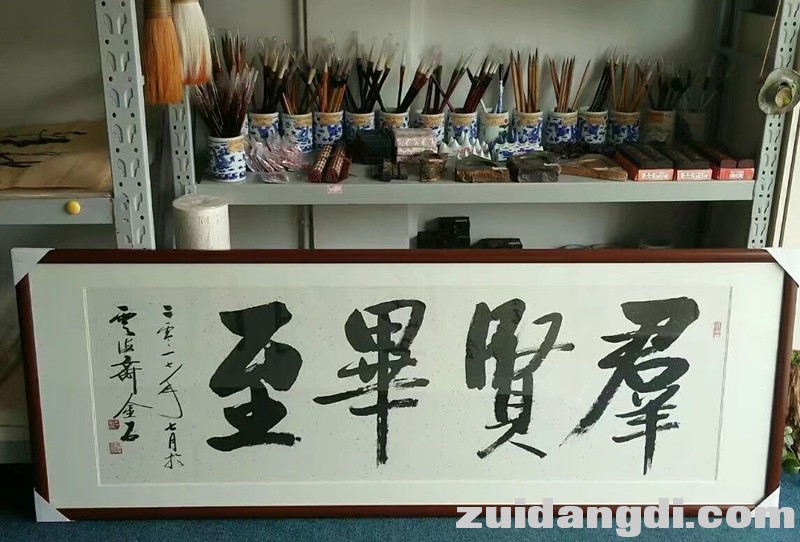 羣賢畢至
二零一七年七月於
雲海齋金石
zuidangdi.com